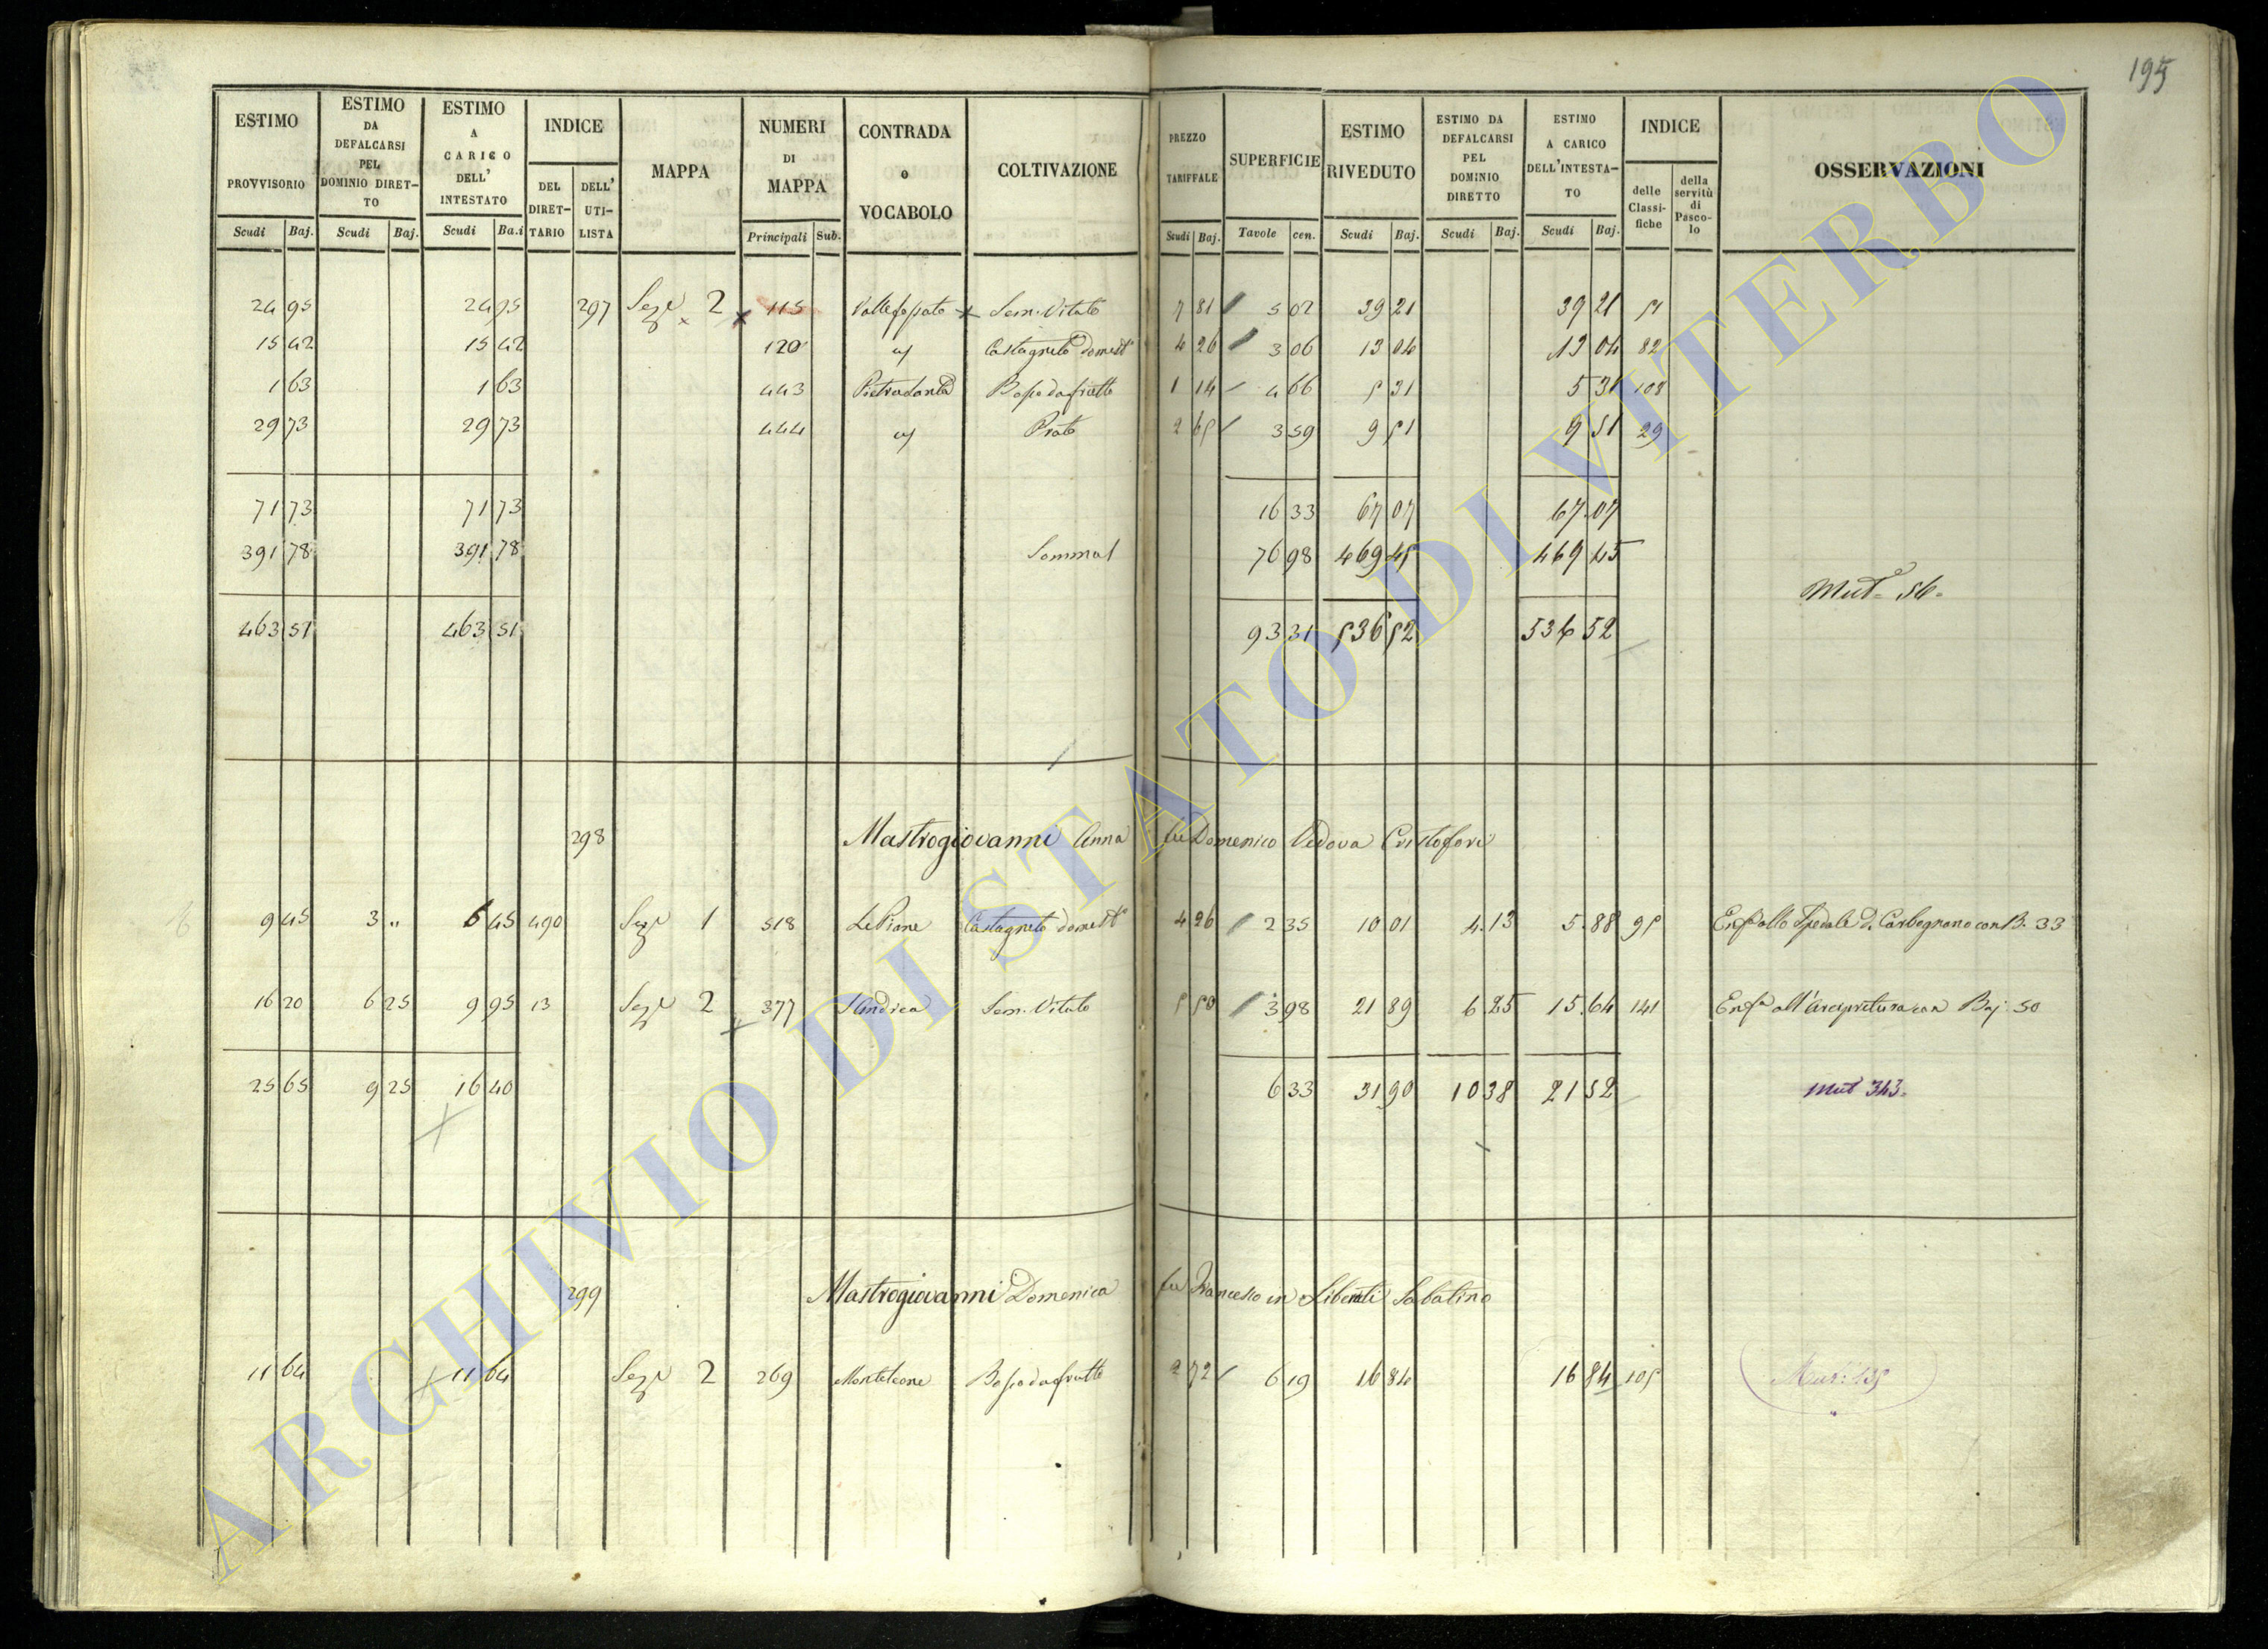 195
ESTIMO PROVVISORIO Scudi Baj.
ESTIMO DA DEFALCARSI PEL DOMINIO DIRET-TO Scudi Baj.
ESTIMO A CARICO DELL' INTESTATO Scudi Ba.i
INDICE DEL DIRET-TARIO DELL' UTI-LISTA
MAPPA
NUMERI DI MAPPA Principali Sub.
CONTRADA o VOCABOLO
COLTIVAZIONE
PREZZO TARIFFALE Scudi Baj.
SUPERFICIE Tavole cen.
ESTIMO RIVEDUTO Scudi Baj.
ESTIMO DA DEFALCARSI PEL DOMINIO DIRETTO Scudi Baj.
ESTIMO A CARICO DELL'INTESTA-TO Scudi Baj.
INDICE delle Classi-fiche della servitù di Pasco-lo
OSSERVAZIONI
24 95 24 95 297 Sez.e 2 115 Vallefossato Sem. Vitato 7 81 5 02 39 21 39 21 51
15 42 15 42 120 Castagneto domest.o 4 26 3 06 13 04 13 04 82
1 63 1 63 443 Boscodafrutto 1 14 4 66 5 31 5 31 108
29 73 29 73 444 Prato 2 65 3 59 9 51 9 51 29
71 73 71 73 16 33 67 07 67.07
391 78 391 78 Somma 76 98 469 45 469 45
Mut.e 56.
463 51 463 51 93 31 536 52 536 52
298 Mastrogiovanni Anna fu Domenico Vedova Cristofori
9 45 3 „ 6 45 490 Sez.e 1 518 Le Piane Castagneto domest.o 4 26 2 35 10 01 4.13 5.88 95 Enf.a allo Spedale di Carbognano con B. 33
16 20 6 25 9 95 13 Sez.e 2 377 S Andrea Sem. Vitato 5 50 3 98 21 89 6 25 15.64 141 Enf.a all'Arcipretura con Baj: 50
25 65 9 25 16 40 6 33 31 90 10 38 21 52 Mut 343.
299 Mastrogiovanni Domenica fu Francesco in Liberati Sabatino
11 64 11 64 Sez.e 2 269 Monteleone Boscodafrutto 2 72 6 19 16 84 16 84 105
ARCHIVIO DI STATO DI VITERBO